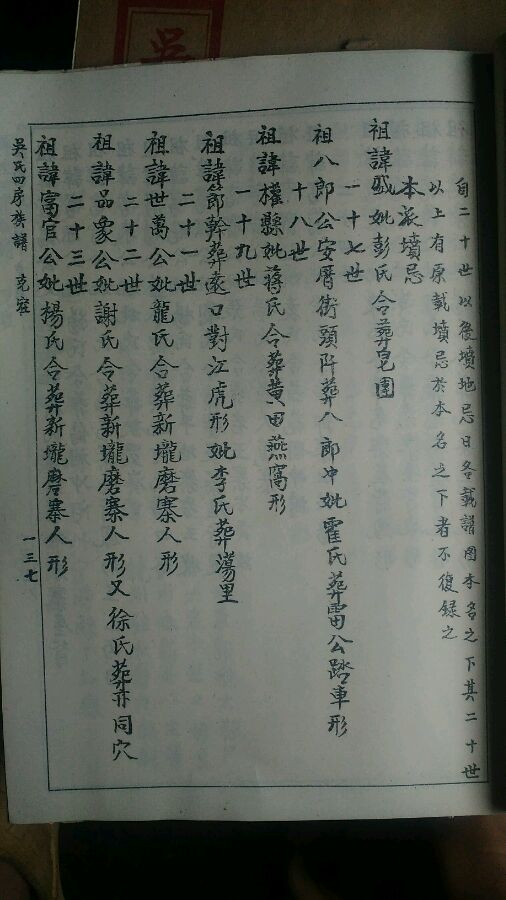 自二十世以後墳地忌日各載譜图本名之下其二十世
以上有原載墳忌於本名之下者不復録之
本派墳忌
祖諱戚妣彭氏合葬皂團
一十七世
祖八郎公安厝街頭阡葬八郎冲妣霍氏葬雷公踏車形
十八世
祖諱權縣妣蒋氏合葬黄田燕窩形
一十九世
祖諱節幹葬遠口對江虎形妣李氏葬蕩里
二十一世
祖諱世萬公妣龍氏合葬新壠磨寨人形
二十二世
祖諱品衆公妣謝氏合葬新壠磨寨人形又徐氏葬亦同穴
二十三世
祖諱富官公妣楊氏合葬新壠磨寨人形
吳氏四房族譜
一三七
吳